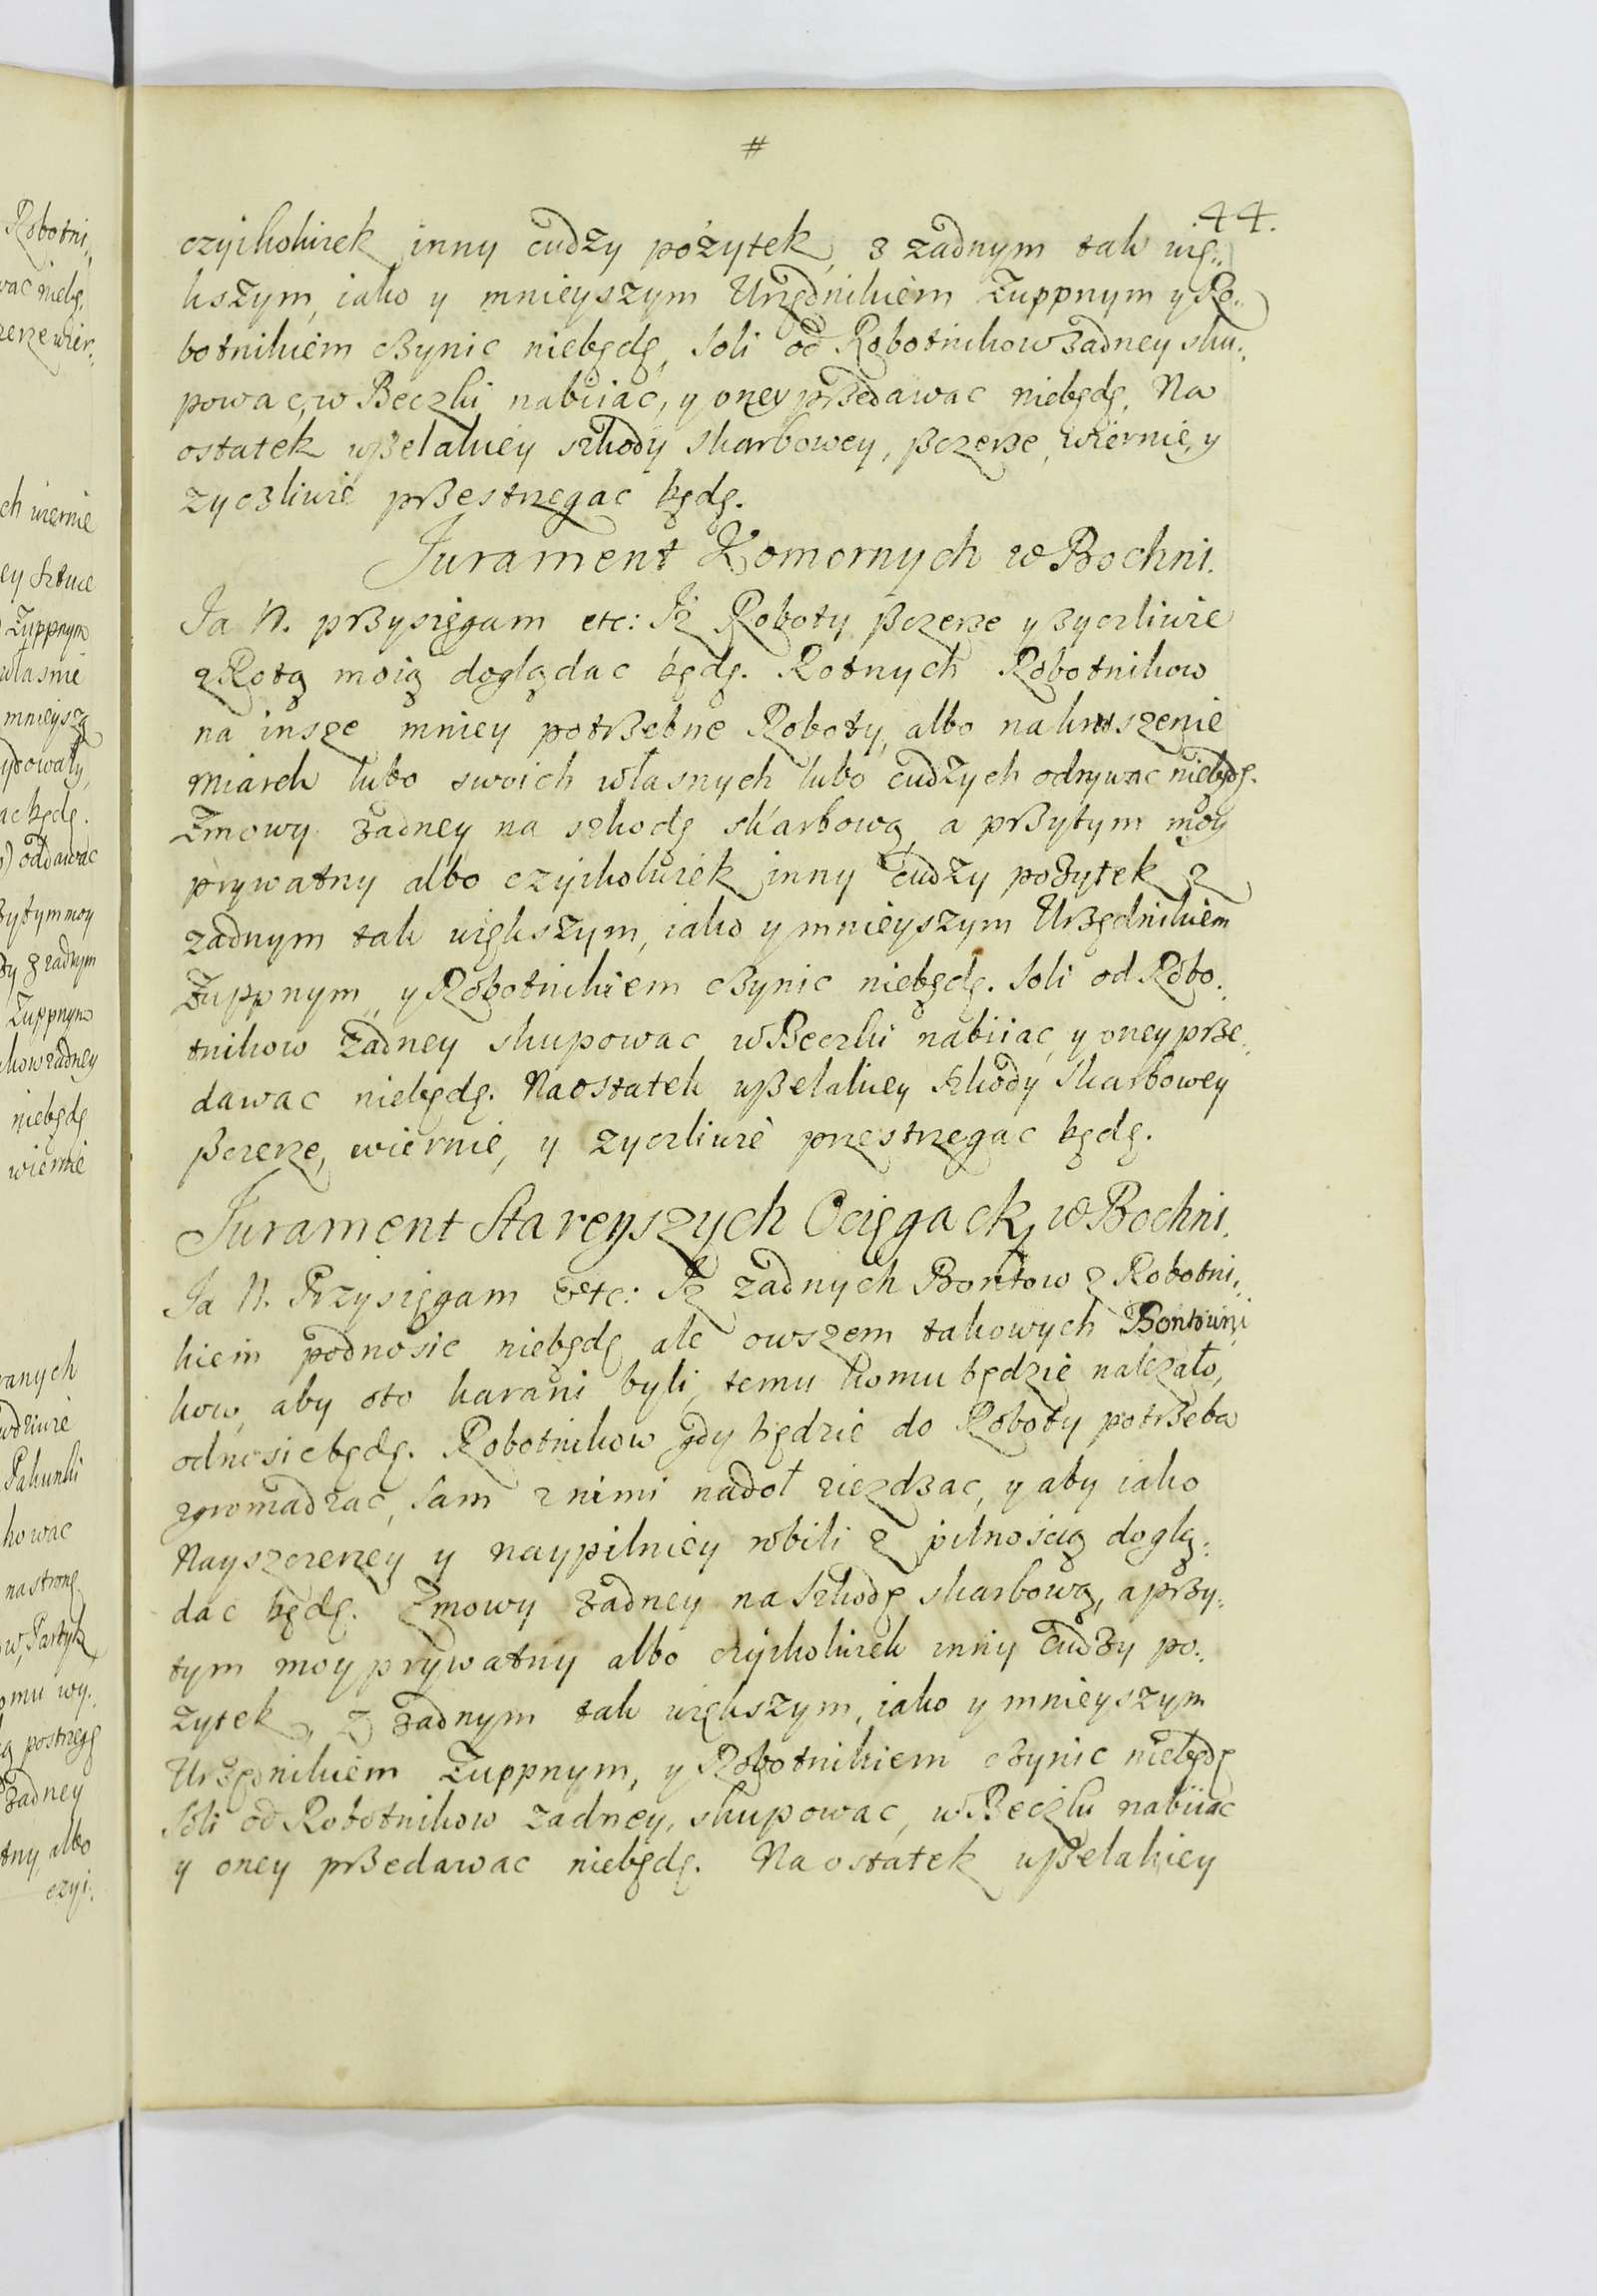 #
44.
czyikolwiek inny cudzy pożytek, z zadnym tak wię„
kszym, iako y mnieyszym Urzędnikiem Zuppnym y Ro„
botnikiem czynic niebędę, Soli od Robotnikow zadney sku„
powac, w Beczki nabiiac, y oney przedawac niebędę. Na
ostatek wszelakiey szkody skarbowey, szczerze, wiernie, y
zyczliwie przestrzegac będę.
Jurament Komornych w Bochni.
Ja N. przysięgam etc: Iz Roboty szczerze y zyczliwie
z Rotą moią doglądac będę. Rotnych Robotnikow
na insze mniey potrzebne Roboty, albo na kruszenie
miarek lubo swoich własnych lubo cudzych odrywac niebędę.
Zmowy zadney na szkodę skarbową, a przytym moy
prywatny albo czyikolwiek inny cudzy pozytek z
zadnym tak większym, iako y mnieyszym Urzędnikiem
Zuppnym, y Robotnikiem czynic niebędę. Soli od Robo„
tnikow zadney skupowac w Beczki nabiiac, y oney prze„
dawac niebędę. Naostatek wszelakiey szkody skarbowey
szczerze, wiernie, y zyczliwie przestrzegac będę.
Jurament Stareyszych Ocięgack, w Bochni.
Ja N. Przysięgam etc: Iz zadnych Bontow z Robotni„
kiem podnosic niebędę ale owszem takowych Bontowni
kow, aby oto karani byli, temu komu będzie nalezało,
odnosic będę. Robotnikow gdy będzie do Roboty potrzeba
zgromadzac, sam z nimi nadoł ziezdzac, y aby iako
Nayszczerzey y naypilniey robili z pilnoscią doglą„
dac będę. Zmowy zadney na szkodę skarbową, a przy„
tym moy prywatny albo czyikolwiek inny cudzy po„
zytek, z zadnym tak większym, iako y mnieyszym
Urzędnikiem Zuppnym, y Robotnikiem czynic niebędę
Soli od Robotnikow zadney, skupowac, w Beczki nabiiac
y oney przedawac niebędę. Na ostatek wszelakiey